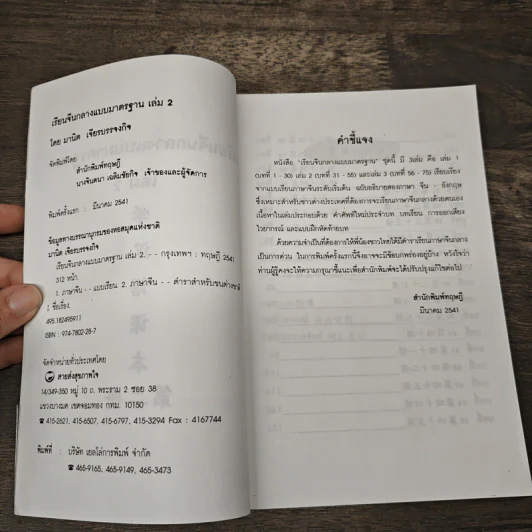 เรียนจีนกลางแบบมาตรฐาน เล่ม 2
โดย มานิต เจียรบรรจงกิจ
จัดพิมพ์โดย
สำนักพิมพ์ทฤษฎี
นางจินตนา เฉลิมชัยกิจ เจ้าของและผู้จัดการ
พิมพ์ครั้งแรก : มีนาคม 2541
ข้อมูลทางบรรณานุกรมของหอสมุดแห่งชาติ
มานิต เจียรบรรจงกิจ
เรียนจีนกลางแบบมาตรฐาน เล่ม 2. - - กรุงเทพฯ : ทฤษฎี, 2541
312 หน้า.
1. ภาษาจีน - - แบบเรียน. 2. ภาษาจีน - - ตำราสำหรับชนต่างชาติ
I. ชื่อเรื่อง.
495.182495911
ISBN : 974-7802-28-7
จัดจำหน่ายทั่วประเทศโดย
สายส่งสุขภาพใจ
14/349-350 หมู่ 10 ถ. พระราม 2 ซอย 38
แขวงบางมด เขตจอมทอง กทม. 10150
☎ 415-2621, 415-6507, 415-6797, 415-3294 Fax : 4167744
พิมพ์ที่ : บริษัท เยลโล่การพิมพ์ จำกัด
☎ 465-9165, 465-9149, 465-3473
คำชี้แจง
หนังสือ "เรียนจีนกลางแบบมาตรฐาน" ชุดนี้ มี 3เล่ม คือ เล่ม 1
(บทที่ 1 - 30) เล่ม 2 (บทที่ 31 - 55) และเล่ม 3 (บทที่ 56 - 75) เรียบเรียง
จากแบบเรียนภาษาจีนระดับเริ่มต้น ฉบับอธิบายสองภาษา จีน - อังกฤษ
ซึ่งเหมาะสำหรับชาวต่างประเทศที่ต้องการจะเรียนภาษาจีนกลางด้วยตนเอง
เนื้อหาในเล่มประกอบด้วย คำศัพท์ใหม่ประจำบท บทเรียน การออกเสียง
ไวยากรณ์ และแบบฝึกหัดท้ายบท
ด้วยความจำเป็นที่ต้องการให้พี่น้องชาวไทยได้มีตำราเรียนภาษาจีนกลาง
เป็นการด่วน ในการพิมพ์ครั้งแรกนี้จึงอาจจะมีข้อบกพร่องอยู่บ้าง หวังใจว่า
ท่านผู้รู้คงจะให้ความกรุณาชี้แนะเพื่อสำนักพิมพ์จะได้ปรับปรุงแก้ไขต่อไป
สำนักพิมพ์ทฤษฎี
มีนาคม 2541